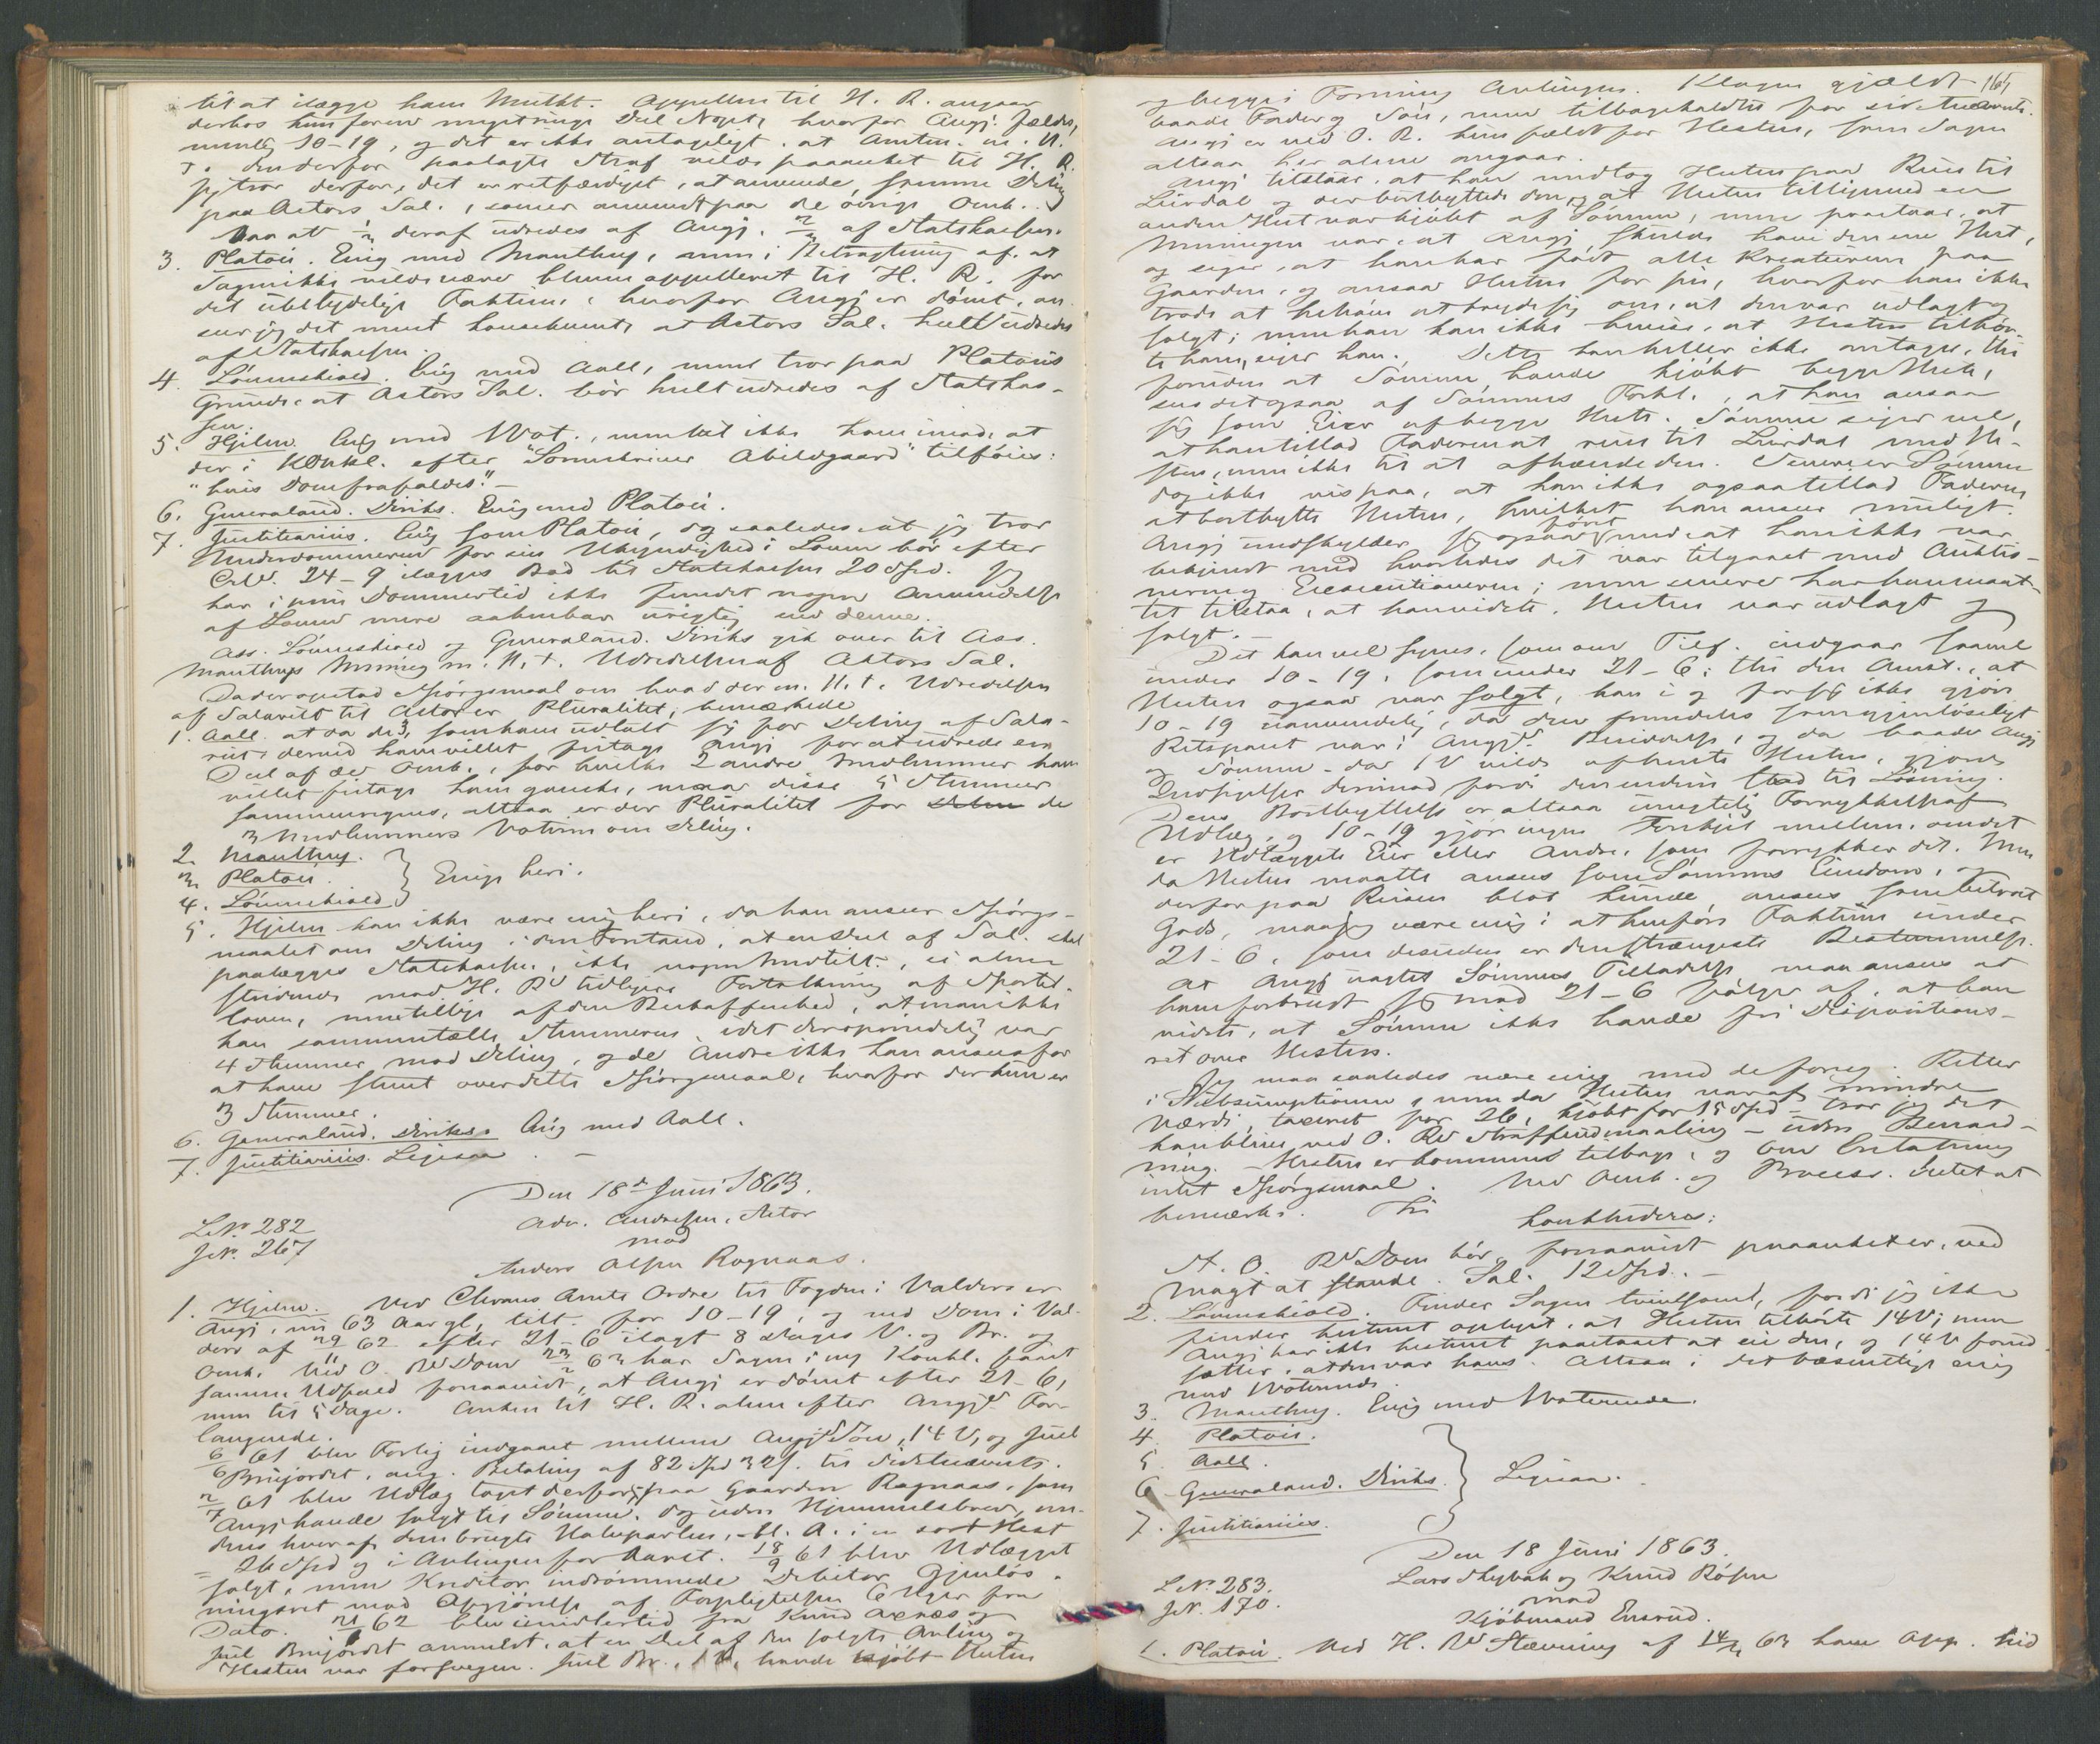 til at ilægge ham Mulkt. Appellen til H. R. angaar
derhos kun foren meget ringe Deel Noget, hvorfor Angj. fældes,
nemlig 10-19, og det er ikke antageligt, at Amtm. m. H.
t. den derfor paalagte Straf vilde paaanket til H. R.
Jeg tror derfor, det er retfærdigst, at anvende samme Deling
paa Actors Sal., som er anvendt paa de øvrige Omk.
saa at deraf udredes af Angj. af Statskassen.
3. Platou. Enig med Manthey, men i Betragtning af, at
Sagen ikke vilde være bleven appelleret til H. R. for
det ubetydelige Faktum, hvorfor Angj er dømt, an
seer jeg det mest konsekvent, at Actors Sal. helt udredes
af Statskassen.
4. Løvenskiold. Enig med Aall, men tror paa Platous
Grunde, at Actors Sal. bør helt udredes af Statskas-
sen.
5. Hjelm. Enig med Vot., men har ikke kun imod, at
der i Konkl. efter "Sorenskriver Abildgaard" tilføies:
"hvis Dom frafaldes." -
6. Generalaud. Diriks. Enig med Platou.
7. Justitiarius. Enig som Platou, og saaledes at jeg tror
Underdommeren for sin Ukyndighed i Loven bør efter
Crl. 24-9 ilægges Bod til Statskassen 20 Spd. Jeg
har i min Dommertid ikke fundet nogen Anvendelse
af Loven mere aabenbar urigtig end denne.
Ass. Løvenskiold og Generalaud. Diriks gik over til Ass.
Mantheys Mening m. H. t. Udredelsen af Aktors Sal.
Da der opstod Spørgsmaal om hvad der m. H. t. Udredelsen
af Salairet til Actor er Pluralitet, bemærkede
1. Aall at da de 3, som have udtalt sig for Deling af Sala-
riet, derved have villet fritage Angj for at udrede en
Deel af de Omk., for hvilke 2 andre Medlemmer have
villet fritage ham ganske, maa disse 5 Stemmer
sammenregnes, altsaa er der Pluralitet for de
3 Medlemmers Votum om Deling.
2. Manthey.
3. Platou. } Enige heri.
4. Løvenskiold
5. Hjelm kan ikke være enig heri, da han anseer Spørgs-
maalet om Deling, i den Forstand, at en Deel af Sal. skal
paalægges Statskassen, ikke nogen Medtilt., ei alene
stridende mod H. Rs tidligere Fortolkning af Sportel-
loven, men tillige af den Beskaffenhed, at man ikke
kan sammentælle Stemmerne, idet der øiensynelig var
4 Stemmer mod Deling, og de Andre ikke kan ansees for
at have stemt over dette Spørgsmaal, hvorfor der kun er
3 Stemmer.
6. Generalaud. Diriks. Enig med Aall.
7. Justitiarius. Ligesaa. -
Den 18de Juni 1863.
L.No. 282
J.N. 267
Adv. Andresen, Actor
mod
Anders Olsen Rognaas.
1. Hjelm. Ved Chrans Amts Ordre til Fogden i Valders er
Angj, nu 63 Aar gl, tilt. for 10-19, og ved Dom i Val-
ders af 62 efter 21-6 ilagt 8 Dages V. og Br. og
Omk. Ved O. Rs Dom 63 har Sagen i ny Konkl. faaet
samme Udfald forsaavidt, at Angj er dømt efter 21-6,
men til 5 Dage. Anken til H. R. alene efter Angjs For-
langende.
61 blev Forlig indgaaet mellem Angjs Søn, 1 V, og Juel
Brujordet, ang. Betaling af 82 Spd 3 til Sidstnævnte.
61 blev Udlæg taget derfor paa Gaarden Rognaas, som
Angj havde solgt til Sønnen, dog uden Hjemmelsbrev, men
dens hver af dem brugte Halvparten, bl. A. i en sort Hest
= 26 Spd og i Avlingen for Aaret. 18/9 61 blev Udlægget
solgt, men Kreditor indrømmede Debitor Gjenløs-
ningsret mod Opgjørelse af Forpligtelsen 6 Uger fra
Dato. 62 blev imidlertid fra Knud Aasnæs og
Juel Brujordet anmeldt, at en Deel af den solgte Avling og
Hesten var forsvunden. Juel Br., 1 V, havde kjøbt Hesten
165
og begge i Forening Avlingen. Klagen gjældt
baade Fader og Søn, men tilbageholdtes for sidstnævnte.
Angj er ved O. R. kun fældt for Hesten, som Sagen
altsaa her alene angaar.
Angj tilstaar, at han medtog Hesten paa Reise til
Lærdal og der bortbyttede den, og at Hesten tilligemed en
anden Hest var kjøbt af Sønnen, men paastaar, at
Meningen var, at Angj skulde have den ene Hest,
og siger, at han har født alle Kreaturene paa
Gaarden, og ansaa Hesten for sin, hvorfor han ikke
troede at behøve at bryde sig om, at den var udlagt og
solgt; men han kan ikke bevise, at Hesten tilhør-
te ham, siger han. Dette kan heller ikke antages, thi
foruden at Sønnen havde kjøbt begge Heste,
sees det ogsaa af Sønnens Forkl., at han ansaa
sig som Eier af begge Heste. Sønnen siger vel,
at han tillod Faderen at reise til Lærdal med He-
sten, men ikke til at afhænde den. Senere er Sønnen
dog ikke vis paa, at han ikke ogsaa tillod Faderen
at bortbytte Hesten, hvilket han anser muligt.
Angj undskylder sig ogsaa først med at han ikke var
bekjendt med hvorledes det var tilgaaet med Auktio-
nen og Executionen; men senere har han maat-
tet tilstaa, at han vidste, Hesten var udlagt og
solgt. -
Det kan vel synes, som om Tilf. indgaar saavel
under 10-19, som under 21-6: thi den Omst., at
Hesten ogsaa var solgt, kan i og for sig ikke gjøre
10-19 uanvendelig, da den fremdeles som gjenløseligt
Retspant var i Angjs Besiddelse, og da baade Angj
og Sønnen - da 1 V vilde afhente Hesten, gjorde
Indsigelse derimod fordi den endnu stod til Løsning.
Dens Bortbyttelse er altsaa unegtelig Forrykkelse af
Udlæg, og 10-19 gjør ingen Forskjel mellem, om det
er Udlæggets Eier eller Andre, som forrykker det. Men
da Hesten maatte ansees som Sønnens Eiendom, og
derfor paa Reisen blot kunde ansees som betroet
Gods, maa jeg være enig i at henføre Faktum under
21-6, som desuden er den strængeste Bestemmelse.
At Angj uagtet Sønnens Tilladelse maa ansees at
have forbrudt sig mod 21-6 følger af, at han
vidste, at Sønnen ikke havde fri Dispositions-
ret over Hesten.
Jeg maa saaledes være enig med de foreg. Retter
i Subsumptionen, men da Hesten var af mindre
Værdi, taxeret for 26, kjøbt for 15 Spd - tror jeg det
kan blive ved O. Rs Straffeudmaaling - uden Benaad-
ning. - Hesten er kommen tilbage, og om Erstatning
intet Spørgsmaal. Ved Omk. og Process. Intet at
bemærke. Thi
konkluderes:
St. O. Rs Dom bør, forsaavidt paaanket er, ved
Magt at stande. Sal. 12 Spd. -
2. Løvenskiold. Finder Sagen tvivlsom, fordi jeg ikke
finder bestemt oplyst, at Hesten tilhørte 1 V; men
Angj har ikke bestemt paastaaet at eie den, og 1 V forud-
sætter, at den var hans. Altsaa i det væsentlige enig
med Voterende.
3. Manthey. Enig med Voterende.
4. Platou.
5. Aall.
6. Generalaud. Diriks. } Ligesaa.
7. Justitiarius.
Den 18 Juni 1863.
L.No. 283.
J.N. 170.
Lars Skybak og Knud Røsen
mod
Kjøbmand Ensrud.
1. Platou. Ved H. Rs Stævning af 63 have App. hid